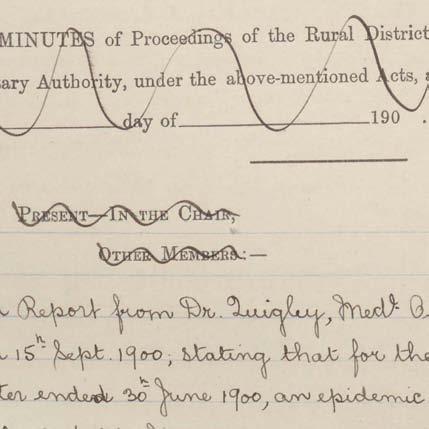 MINUTES of Proceedings of the Rural District
ary Authority, under the above-mentioned Acts, a
day of 190 .
PRESENT—IN THE CHAIR,
OTHER MEMBERS:—
Report from Dr. Quigley, Medl. O
15th Sept. 1900; stating that for the
ter ended 30th June 1900, an epidemic